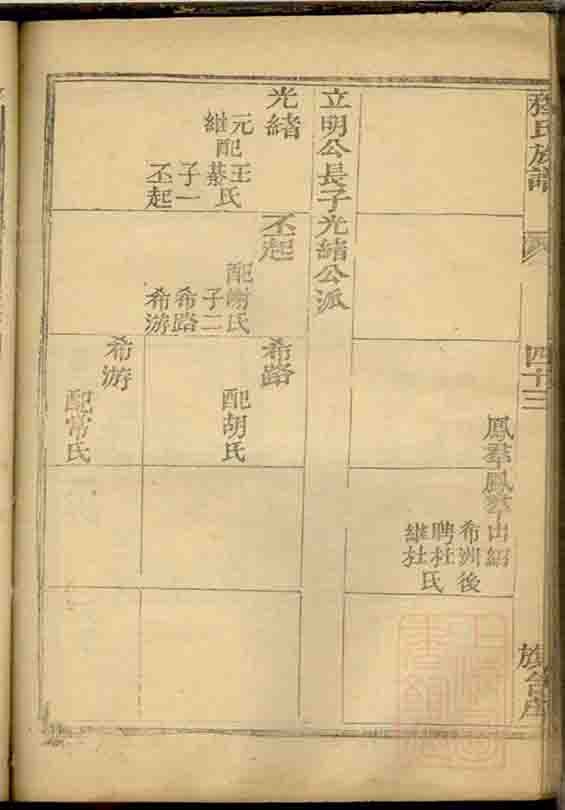 氏族譜
四十三
鳳羣
鳳翠出紹
希洲後
聘杜氏
繼杜
立明公長子光緒公派
光緒
元配王氏
繼配綦氏
子一
丕起
丕起
配謝氏
子二
希路
希游
希路
配胡氏
希游
配常氏